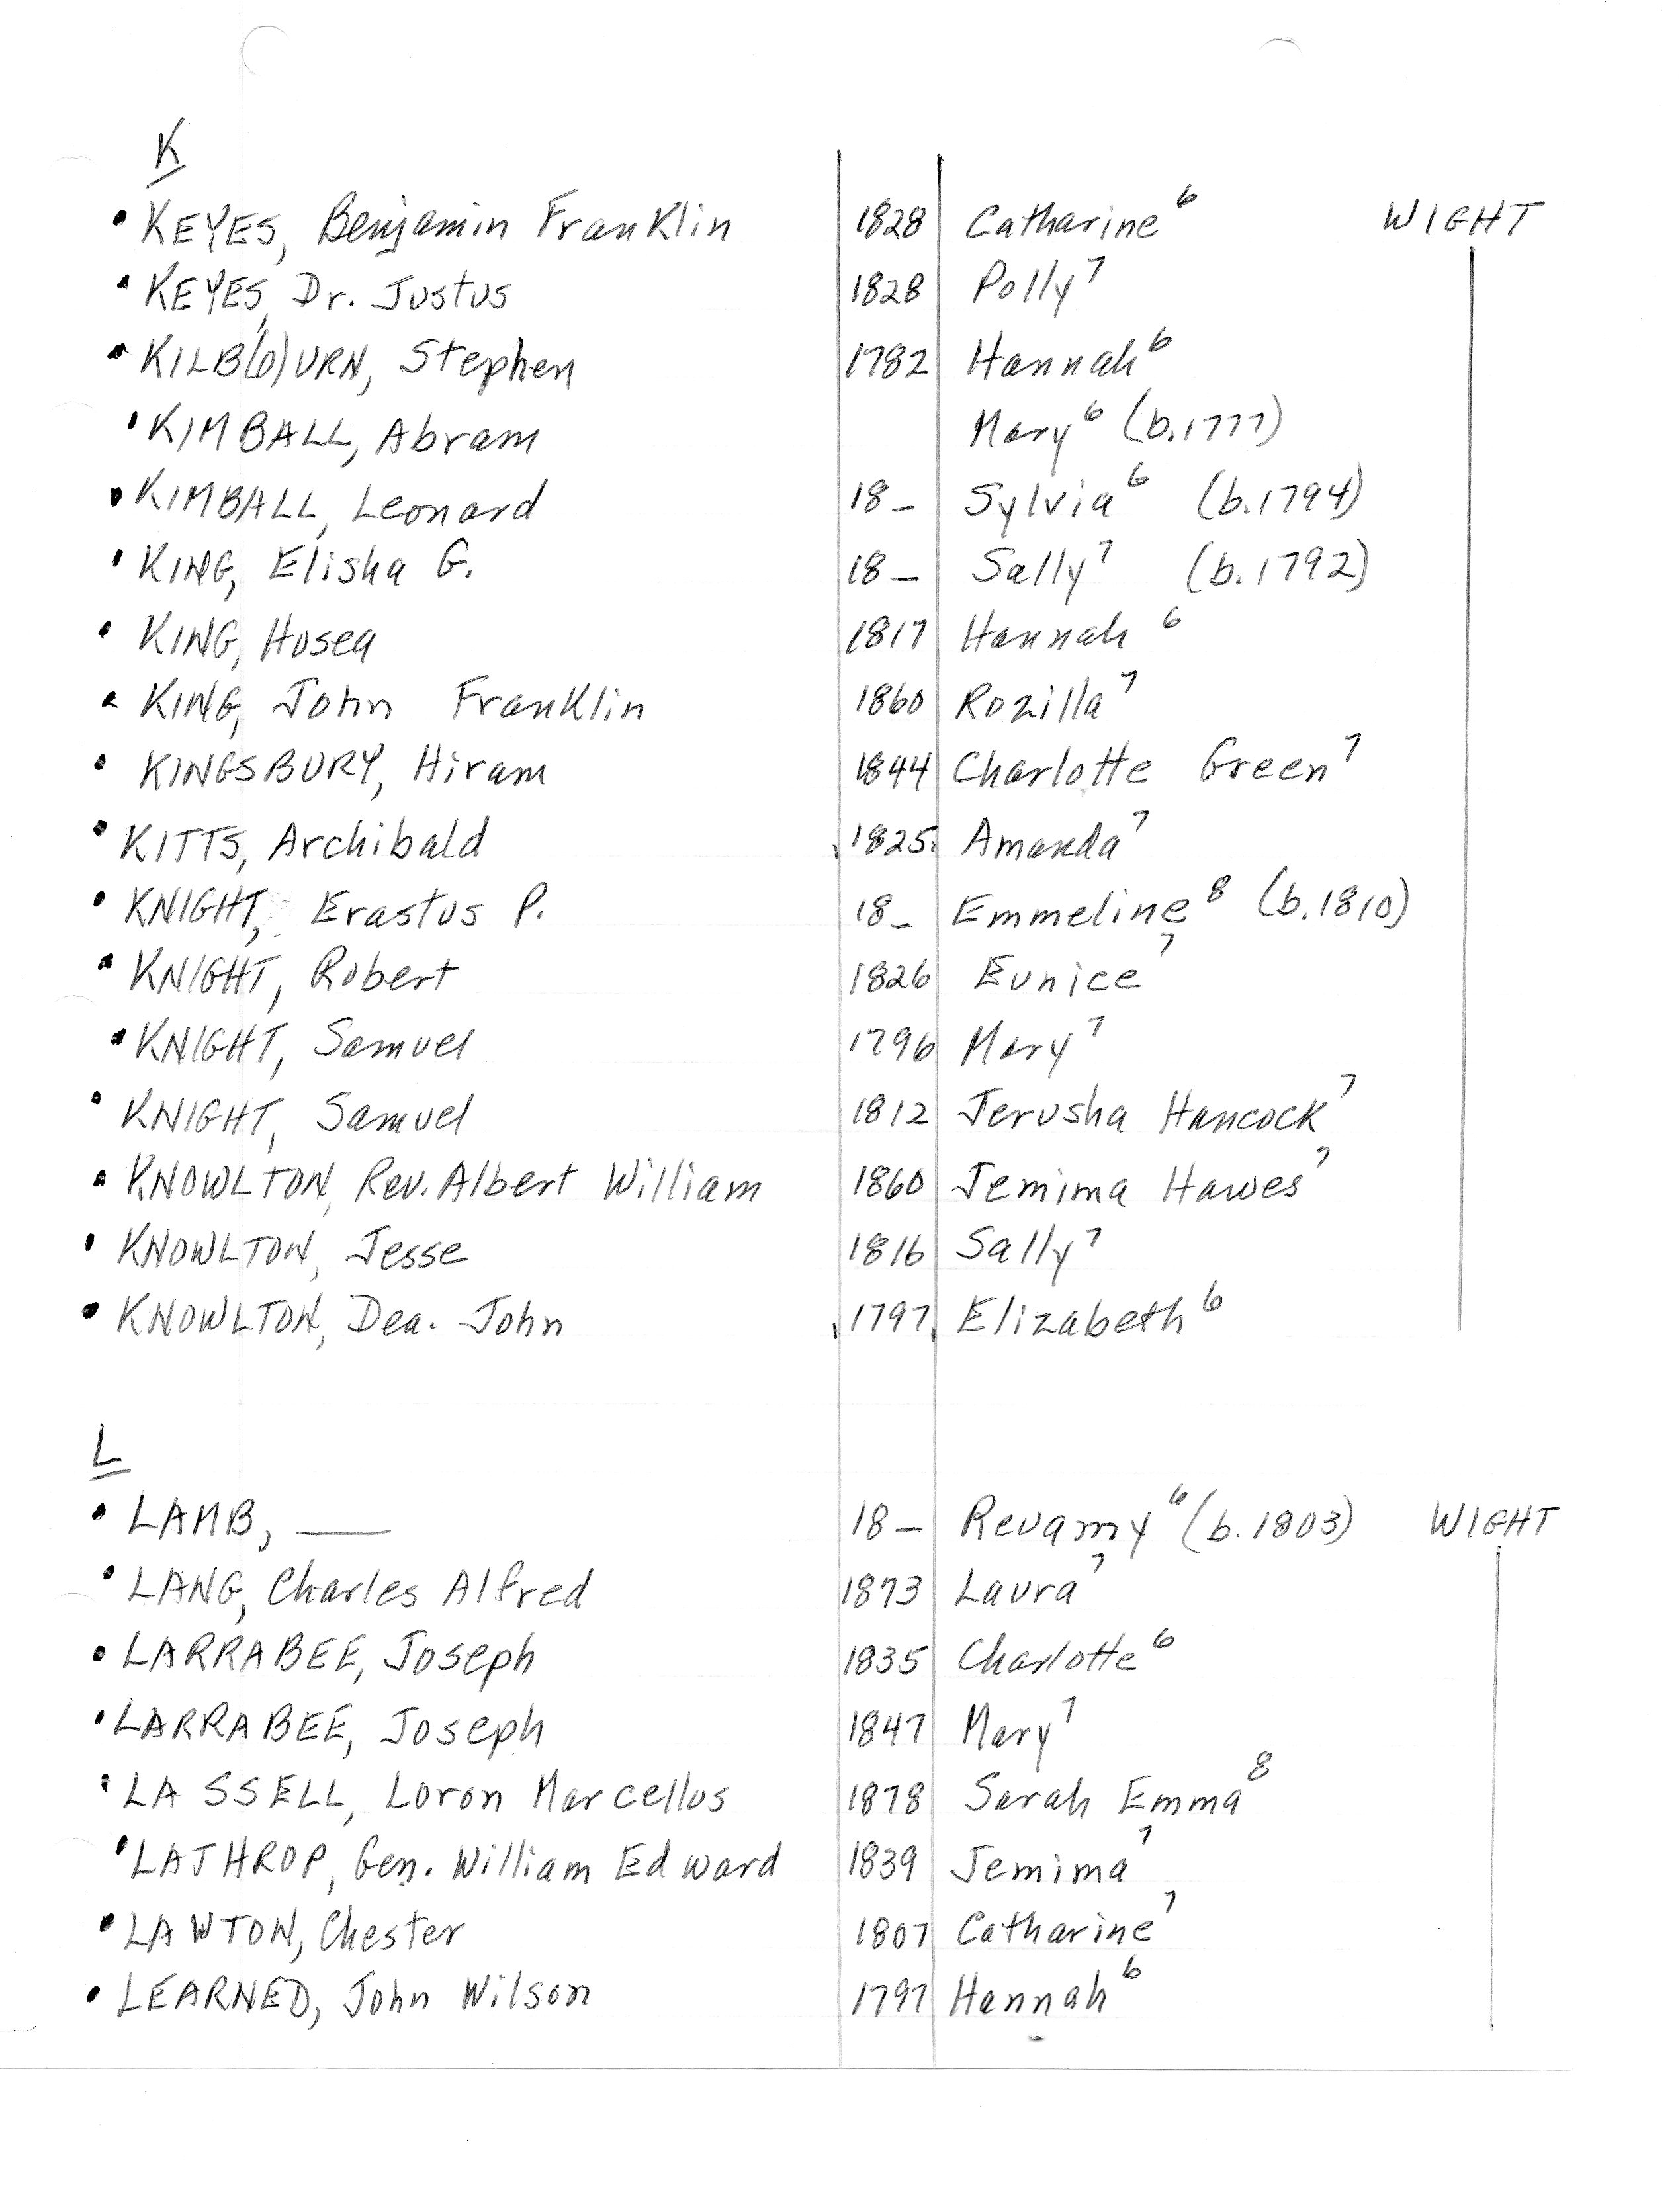 K
• KEYES, Benjamin Franklin 1828 Catharine⁶ WIGHT
• KEYES, Dr. Justus 1828 Polly⁷
• KILB(O)URN, Stephen 1782 Hannah⁶
• KIMBALL, Abram Mary⁶ (b.1777)
• KIMBALL, Leonard 18— Sylvia⁶ (b.1794)
• KING, Elisha G. 18— Sally⁷ (b.1792)
• KING, Hosea 1817 Hannah⁶
• KING, John Franklin 1860 Rozilla⁷
• KINGSBURY, Hiram 1844 Charlotte Green⁷
• KITTS, Archibald 1825 Amanda⁷
• KNIGHT, Erastus P. 18— Emmeline⁸ (b.1810)
• KNIGHT, Robert 1826 Eunice⁷
• KNIGHT, Samuel 1796 Mary⁷
• KNIGHT, Samuel 1812 Jerusha Hancock⁷
• KNOWLTON, Rev. Albert William 1860 Jemima Hawes⁷
• KNOWLTON, Jesse 1816 Sally⁷
• KNOWLTON, Dea. John 1797 Elizabeth⁶
L
• LAMB, —— 18— Revamy⁶ (b.1803) WIGHT
• LANG, Charles Alfred 1873 Laura⁷
• LARRABEE, Joseph 1835 Charlotte⁶
• LARRABEE, Joseph 1847 Mary⁷
• LASSELL, Loron Marcellus 1878 Sarah Emma⁸
• LATHROP, Gen. William Edward 1839 Jemima⁷
• LAWTON, Chester 1807 Catharine⁷
• LEARNED, John Wilson 1797 Hannah⁶